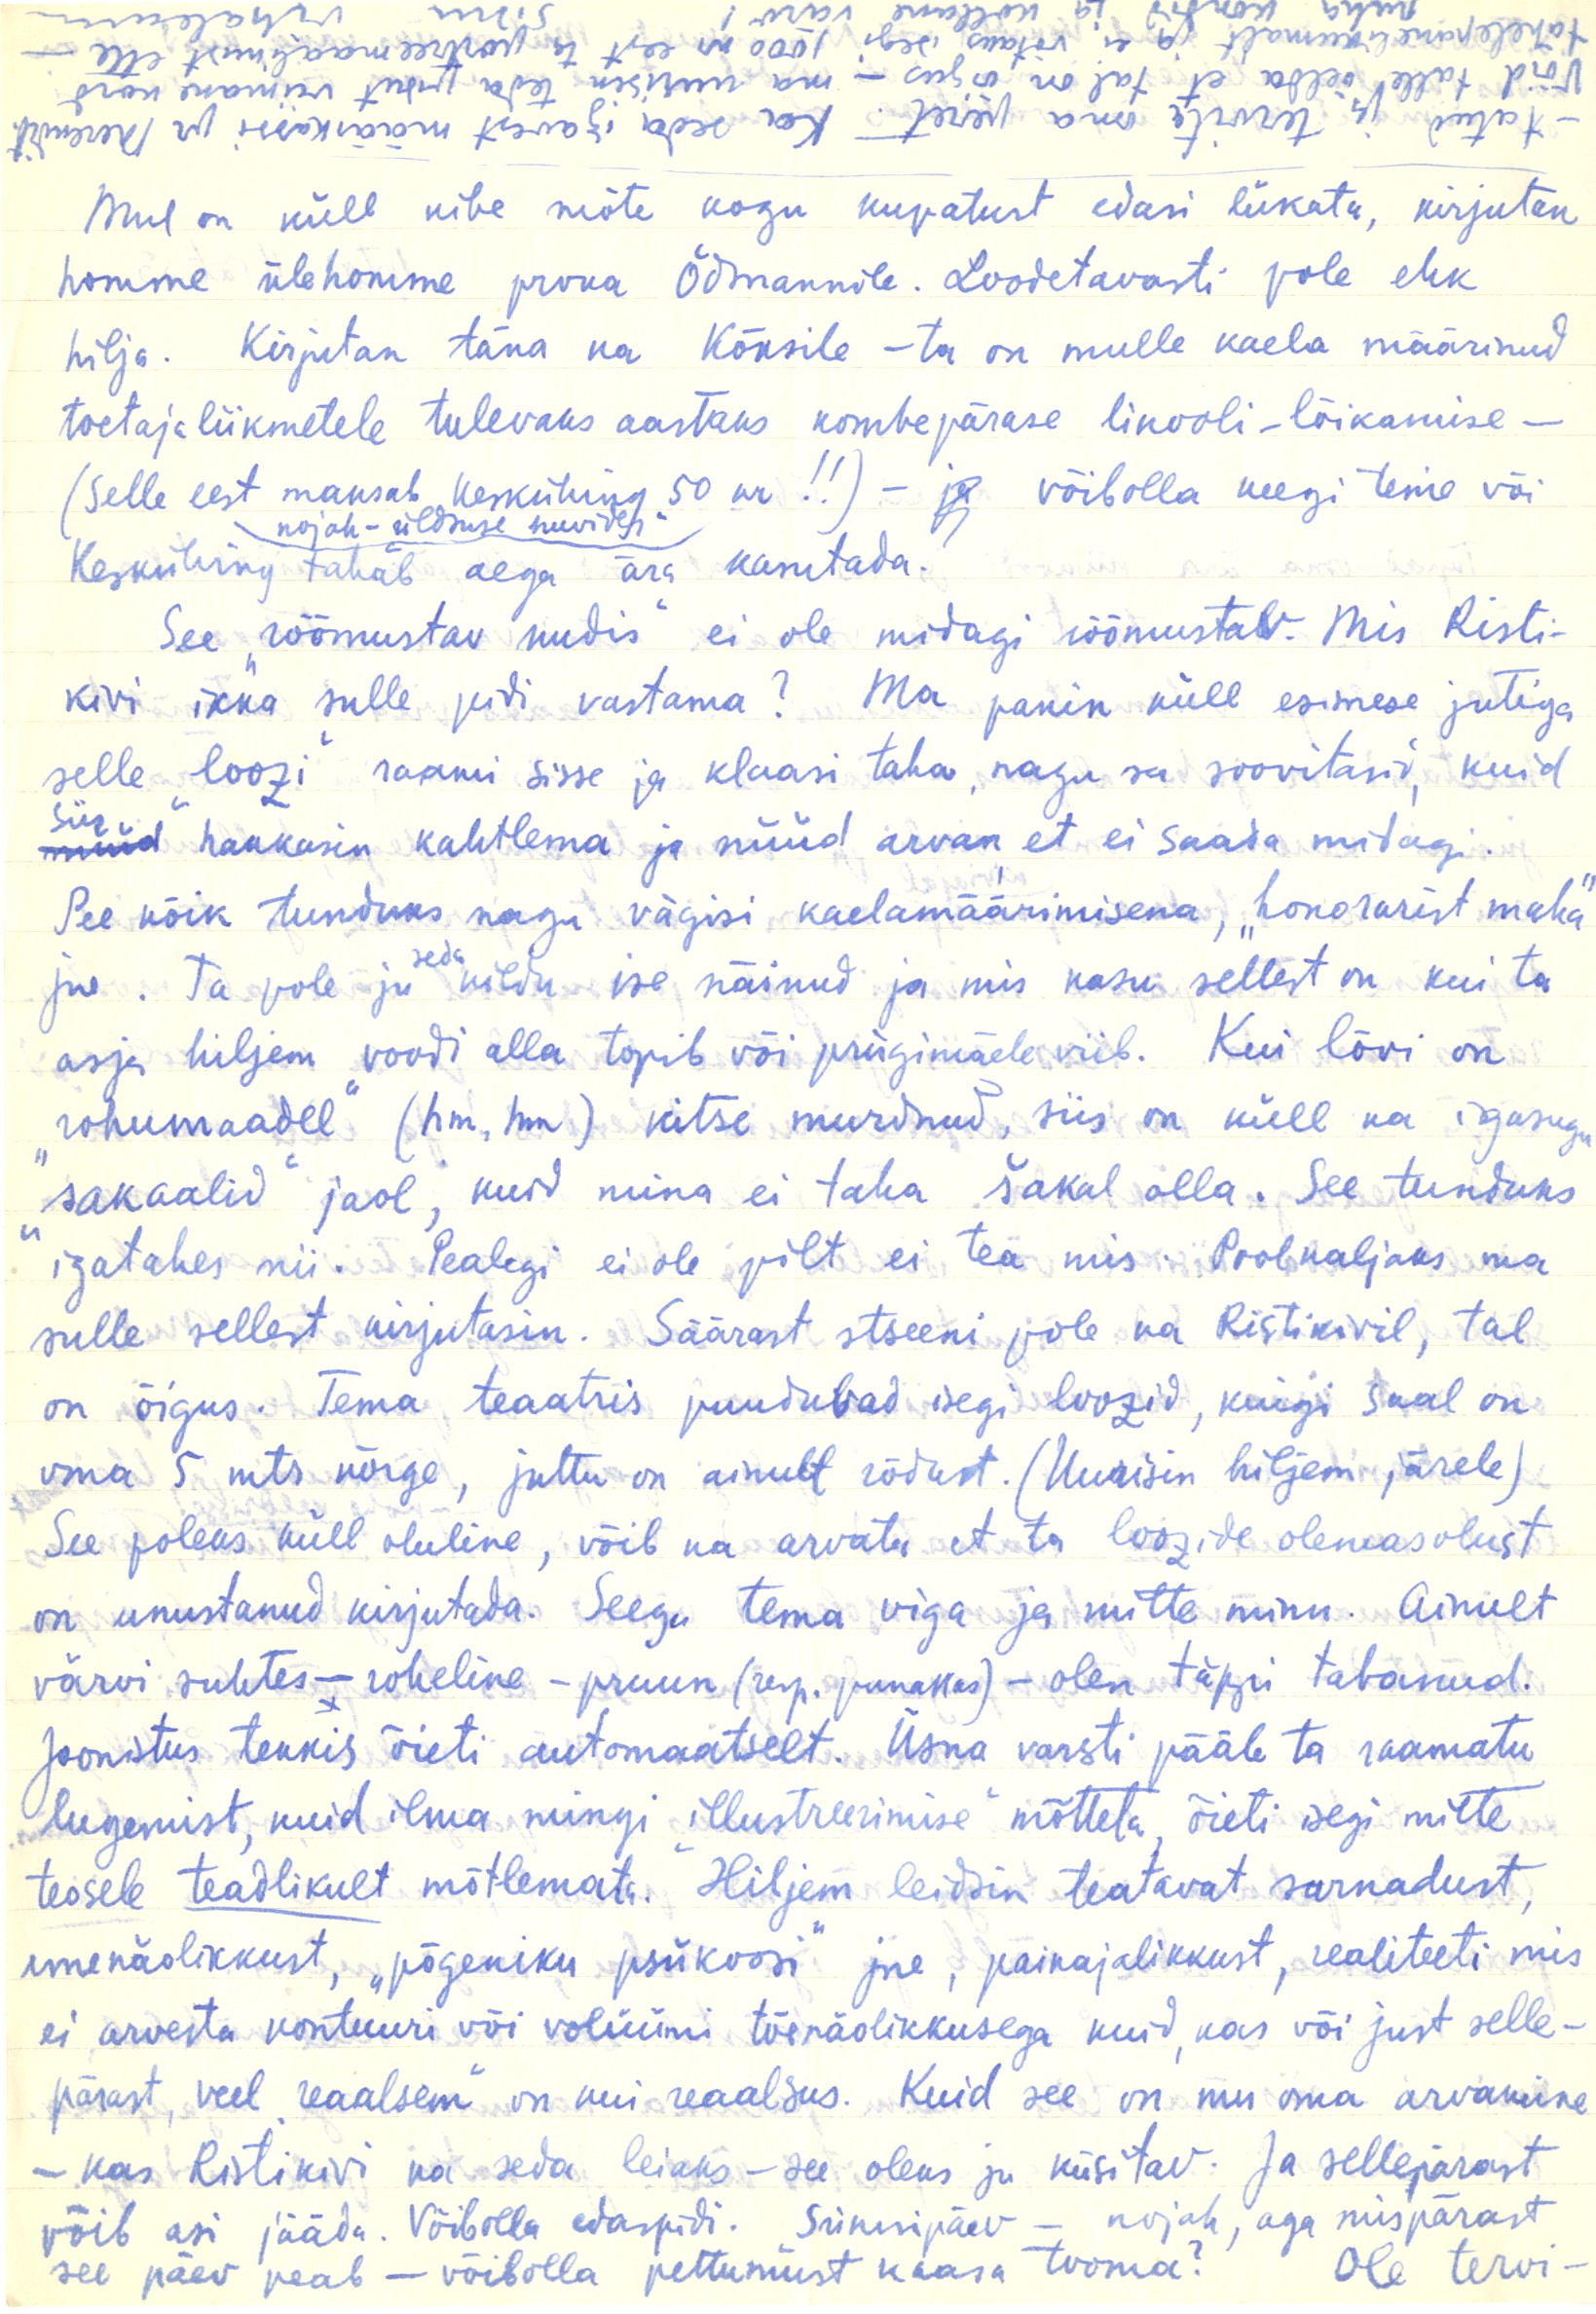 Mul on küll kibe mõte kogu kupatust edasi lükata, kirjutan
homme ülehomme proua Ödmannile. Loodetavasti pole ehk
hilja. Kirjutan täna ka Kõksile – ta on mulle kaela määrinud
toetajaliikmetele tulevaks aastaks kombepärase linooli-lõikamise –
(Selle eest maksab Keskühing 50 kr !!) – ja võibolla keegi teine või
nojah – üldsuse huvides
Keskühing tahab aega ära kasutada.
See „rõõmustav uudis“ ei ole midagi rõõmustav. Mis Risti-
kivi ikka sulle pidi vastama? Ma panin küll esimese jutiga
selle „loozi“ raami sisse ja klaasi taha, nagu sa soovitasid, kuid
siis hakkasin kahtlema ja nüüd arvan, et ei saada midagi.
See kõik tunduks nagu vägisi kaelamäärimisena, „honorarist maha“
jne. Ta pole ju seda kildu ise näinud ja mis kasu sellest on kui ta
asja hiljem voodi alla topib või prügimäele viib. Kui lõvi on
„rohumaadel“ (hm, hm) kitse murdnud, siis on küll ka igasugu
„sakaalid“ jaol, kuid mina ei taha šakal olla. See tunduks
igatahes nii. Pealegi ei ole pilt ei tea mis. Poolnaljaks ma
sulle sellest kirjutasin. Säärast stseeni pole ka Ristikivil, tal
on õigus. Tema teaatris puuduvad isegi loozid, kuigi saal on
oma 5 mtr kõrge, juttu on ainult rõdust. (Uurisin hiljem järele)
See poleks küll oluline, võib ka arvata et ta loozide olemasolust
on unustanud kirjutada. Seega tema viga ja mitte minu. Ainult
värvi suhtes – roheline – pruun (resp. punakas) – olen täpri tabanud.
Joonistus tekkis õieti automaatselt. Üsna varsti pääle ta raamatu
lugemist, kuid ilma mingi „illustreerimise“ mõtteta, õieti isegi mitte
teosele teadlikult mõtlemata. Hiljem leidsin teatavat sarnadust,
unenäolikkust, „põgeniku psükoosi“ jne, painajalikkust, realiteeti mis
ei arvesta kontuuri või volüümi tõenäolikkusega kuid, kas või just selle-
pärast, veel „reaalsem“ on kui reaalsus. Kuid see on mu oma arvamine
– kas Ristikivi ka seda leiaks – see oleks ju küsitav. Ja sellepärast
võib asi jääda. Võibolla edaspidi. Sünnipäev – nojah, aga mispärast
see päev peab – võibolla pettumust kaasa tooma? Ole tervi-
– tatud ja tervita oma peret. Ka seda igavest määrkassi ja
Võid talle öelda et tal on õigus – ma müüsin teda viimane kord
tähelepanelikumalt ja ei võtaks isegi 1000 kr eest ta portreemaalimist ette –
kondid ja kollane värv! Sinu